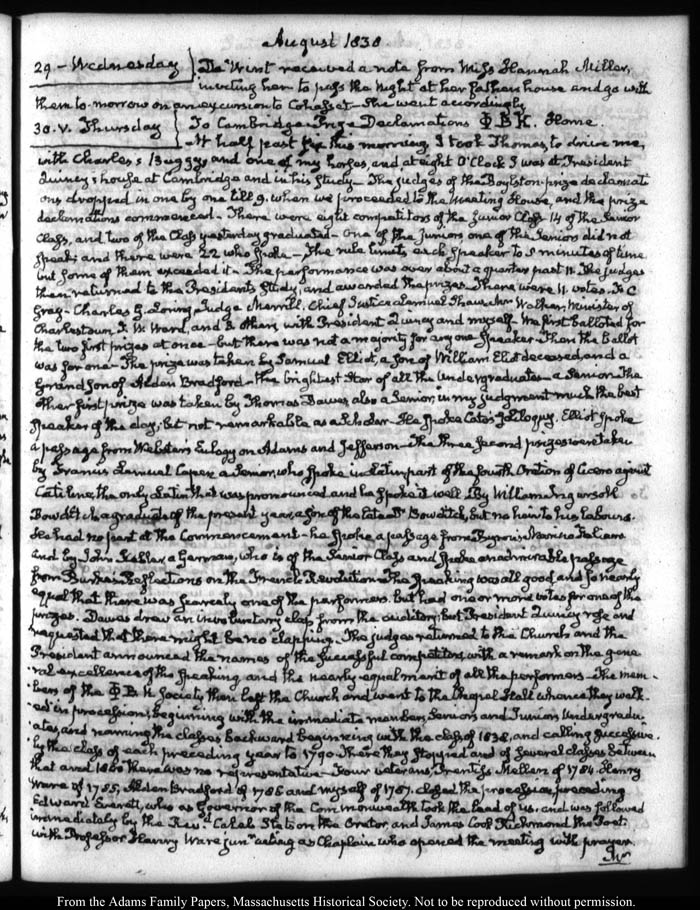 August 1838
29 - Wednesday } De Wint received a note from Miss Hannah Miller,
inviting her to pass the Night at her fathers house and go with
them to-morrow on an excursion to Cohasset - She went accordingly
30. V. Thursday } To Cambridge - Declamations Φ B K. Home.
At half past this morning, I took Thomas, to drive me,
with Charles's Buggy, and one of my horses, and at eight O'Clock I was at President
Quincy's house at Cambridge and in his Study - The judges of the Boylston-prize declamati
ons dropped in one by one till 9. when we proceeded to the Meeting House, and the prize
declamations commenced - There were eight competitors of the Junior Class 14 of the Senior
Class, and two of the Class yesterday graduated - One of the Juniors one of the Seniors did not
speak; and there were 22 who spoke - The rule limits each Speaker to 5 minutes of time
but some of them exceeded it - The performance was over about a quarter past 11. The judges
then returned to the Presidents Study, and awarded the prizes. There were 11 votes. F. C
Gray - Charles G. Loring Judge Merrill, Chief Justice Lemuel Shaw, Mr Walker, Minister of
Charlestown, Ward, and 3 others, with President Quincy and myself. We first balloted for
the two first prizes at once - but there was not a majority for any one Speaker - Then the Ballot
was for one - The prize was taken by Samuel Elliot, a Son of William Eliot deceased, and a
Grandson of Alden Bradford - the brightest Star of all the Undergraduates - a Senior - The
other first prize was taken by Thomas Dawes also a Senior, in my judgment much the best
Speaker of the day, but not remarkable as a Scholar - He spoke Cato's Soliloquy. Elliot spoke
a passage from Webster's Eulogy on Adams and Jefferson - The three Second prizes were taken
by Francis Lemuel Capen, a Senior, who spoke in Latin part of the fourth Oration of Cicero against
Catiline, the only Latin that was pronounced and he spoke it well. By William Ingersoll
Bowditch a graduate of the present year, a Son of the late Dr Bowditch, but no heir to his labours.
He had no part at the Commencement - he spoke a passage from Byron's Marino Faliero
and by John Kebler a German, who is of the Senior Class and spoke an admirable passage
from Burke's Reflections on the French Revolution - The Speaking was all good and so nearly
equal that there was scarcely one of the performers but had one or more votes for one of the
prizes. Dawes drew an involuntary clap from the auditory; but President Quincy rose and
requested that there might be no clapping. The judges returned to the Church and the
President announced the names of the successful competitors, with a remark on the gene
ral excellence of the speaking, and the nearly equal merit of all the performers - The mem
bers of the Φ B K Society, then left the Church and went to the Chapel Hall whence they walk
ed in procession, beginning with the immediate members, Seniors and Juniors Undergradu
ates, and naming the classes backward beginning with the class of 1838, and calling successive
ly the class of each preceding year to 1790. There they stopped, and of several classes between
that and 1800 there was no representative - Four veterans, Prentiss Mellen of 1784. Henry
Ware of 1785, Alden Bradford of 1786 and myself of 1787. closed the procession, preceding
Edward Everett, who as Governor of the Commonwealth took the head of us, and was followed
immediately by the Revd Caleb Stetson the Orator, and James Cook Richmond the Poet
with Professor Henry Ware junr acting as Chaplain who opened the meeting with prayer.
Mr
From the Adams Family Papers, Massachusetts Historical Society. Not to be reproduced without permission.